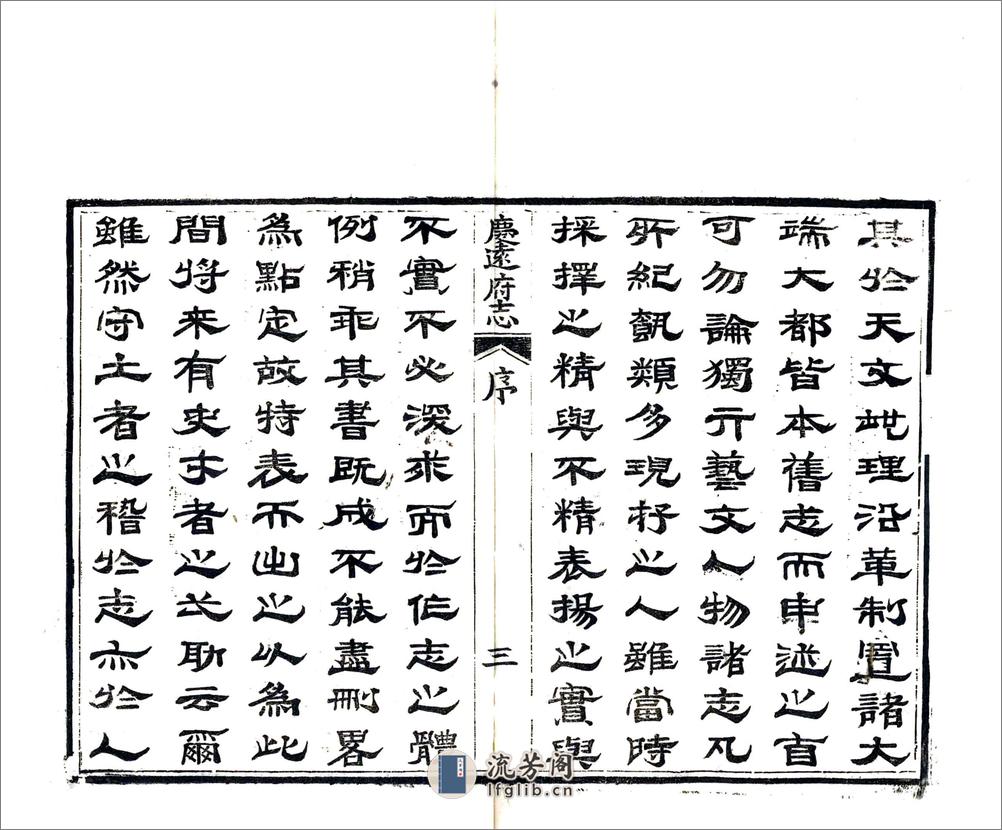 其於天文地理沿革制置諸大
端大都皆本舊志而申述之自
可勿論獨于藝文人物諸志凡
所紀孰類多現存之人雖當時
採擇之精與不精表揚之實與
慶遠府志
序
三
不實不必深求而於作志之體
例稍乖其書既成不能盡刪畧
為點定故特表而出之以為此
間將來有史才者之長取云爾
雖然守土者之稽於志亦於人
流芳阁
lfglib.cn